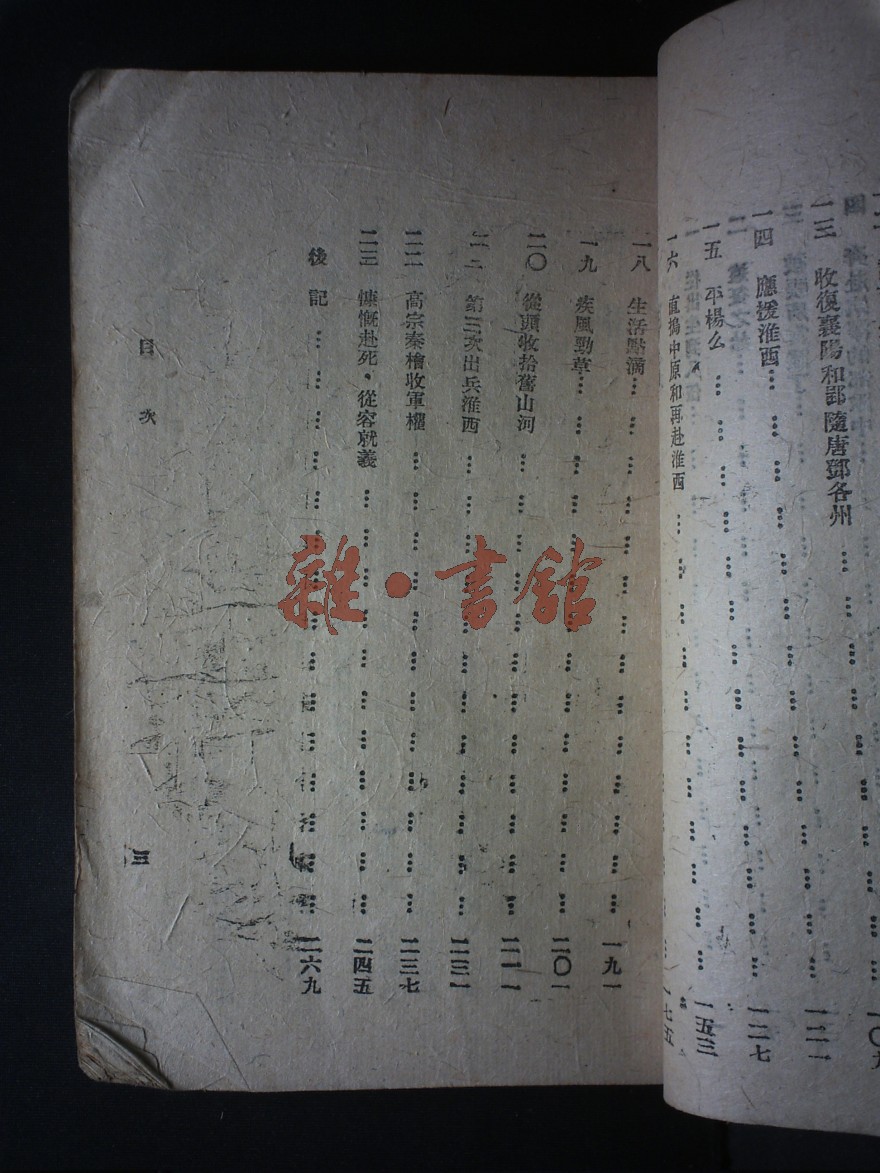 一三 收復襄陽和郢隨唐鄧各州……一〇九
一四 應援淮西……一二一
一五 平楊么……一二七
一六 直搗中原和再赴淮西……一五三
一七五
一八 生活點滴……一九一
一九 疾風勁草……二〇一
二〇 從頭收拾舊山河……二一一
二一 第三次出兵淮西……二三一
二二 高宗秦檜收軍權……二三七
二三 慷慨赴死，從容就義……二四五
後記……二六九
目次 三
雜·書館